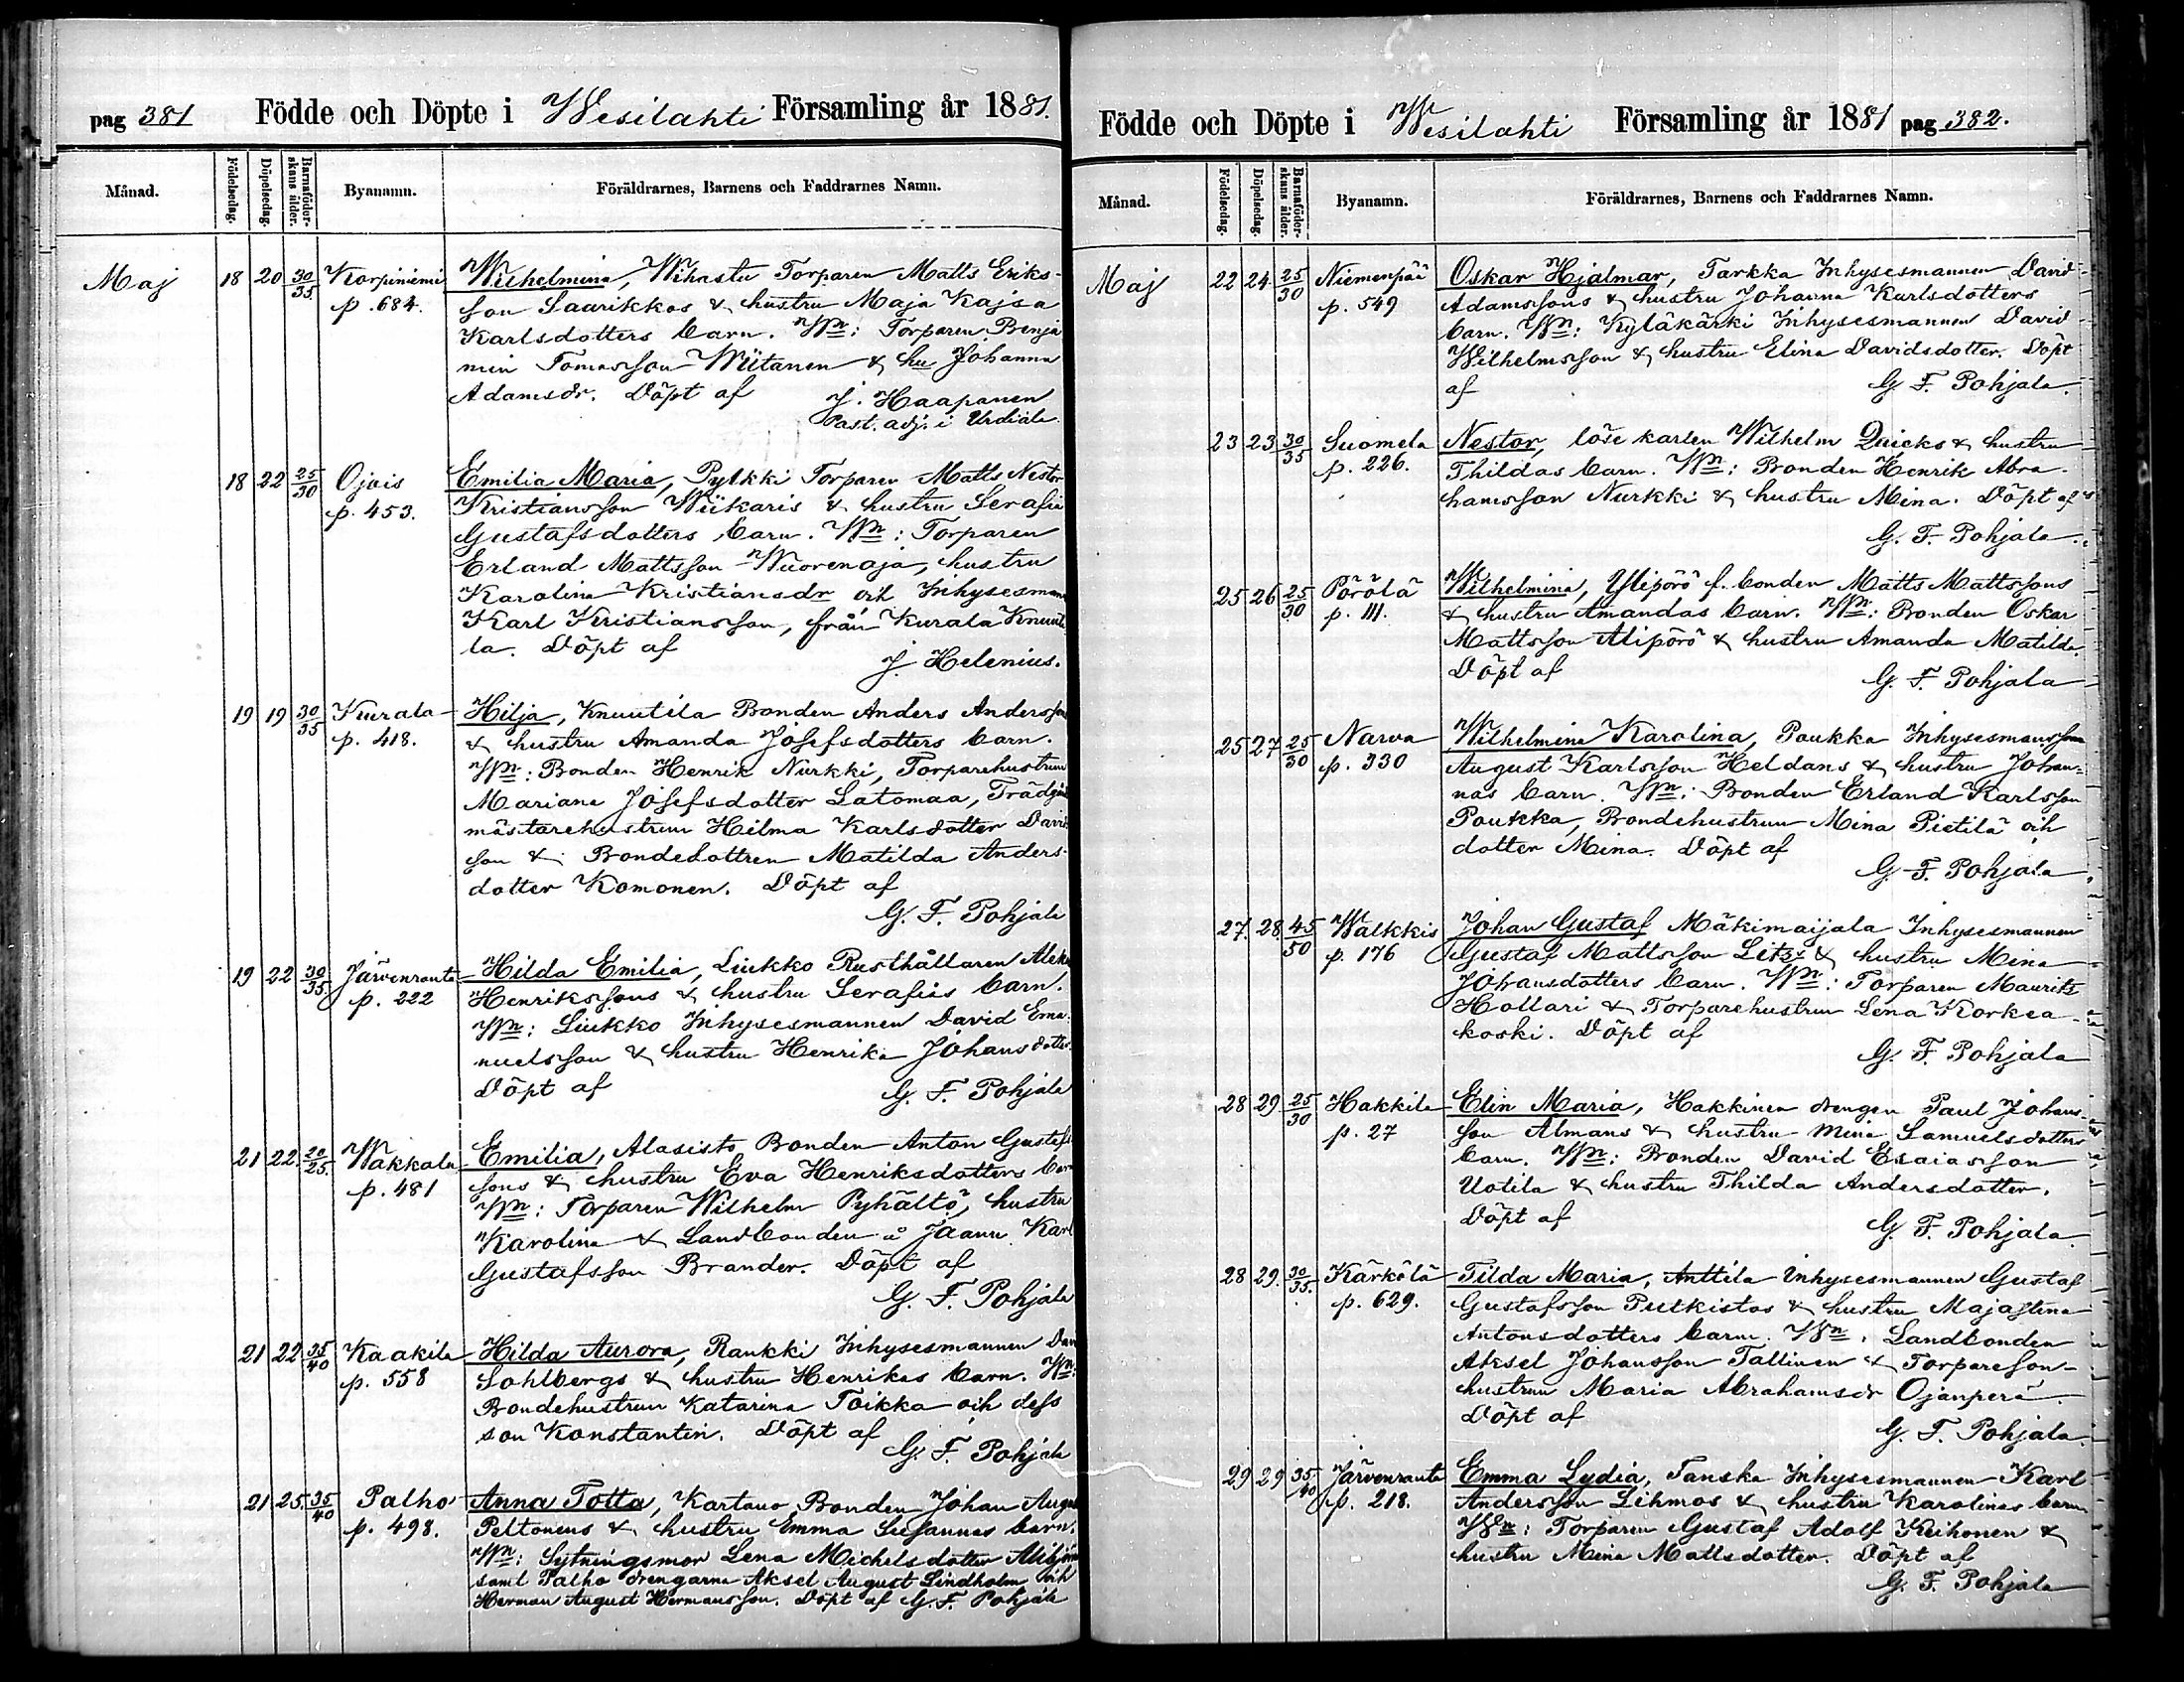 pag 381 Födde och Döpte i Wesilahti Församling år 1881.
Månad. Födelsedag. Döpelsedag. Barnaföderskans ålder. Byanamn. Föräldrarnes, Barnens och Faddrarnes Namn.
Maj 18 20 30/35 Korpiniemi Wilhelmina, Wihastu Torparen Matts Eriks-
p. 684. son Saarikkos & hustru Maja Kajsa
Karlsdotters barn. Wn: Torparen Benja
min Tomasson Wiitanen & hu Johanna
Adamsdr. Döpt af J. Haapanen
Past. adj. i Urdiala.
18 22 25/30 Ojois Emilia Maria, Pylkki Torparen Matts Nestor
p. 453. Kristiansson Wiikaris & hustru Serafia
Gustafsdotters barn. Wn: Torparen
Erland Mattsson Wuorenoja, hustru
Karolina Kristiansdr och Inhysesmann
Karl Kristiansson, från Kurala Knuuti
la. Döpt af J. Helenius.
19 19 30/35 Kurala Hilja, Knuutila Bonden Anders Andersson
p. 418. & hustru Amanda Josefsdotters barn.
Wn: Bonden Henrik Nurkki, Torparehustrun
Mariana Josefsdotter Latomaa, Trädgårds
mästarehustrun Hilma Karlsdotter David
son & Bondedottren Matilda Anders-
dotter Komonen. Döpt af
G. F. Pohjala
19 22 30/35. Järvenranta Hilda Emilia, Liukko Rusthållaren
p. 222 Henrikssons & hustru Serafias barn.
Wn: Liukko Inhysesmannen David Ema-
nuelsson & hustru Henrika Johansdotter.
Döpt af G. F. Pohjala
21 22. 20/25. Wakkala Emilia, Alasisto Bonden Anton Gustafs
p. 481 sons & hustru Eva Henriksdotters barn
Wn: Torparen Wilhelm Pyhältö, hustru
Karolina & Landbonden å Jaanu Karl
Gustafsson Brander. Döpt af
G. F. Pohjala
21 22 35/40 Kaakila Hilda Aurora, Raukki Inhysesmannen Dav
p. 558 Sohlbergs & hustru Henrikas barn. Wn:
Bondehustrun Katarina Toikka och dess
son Konstantin. Döpt af
G. F. Pohjala
21 25. 35/40 Palho Anna Totta, Kartano Bonden Johan August
p. 498. Peltonens & hustru Emma Susannas barn.
Wn: Sytningsmor Lena Michelsdotter
samt Palho drengarna Aksel August Lindholm och
Herman August Hermansson. Döpt af G. F. Pohjala
Födde och Döpte i Wesilahti Församling år 1881 pag 382.
Månad. Födelsedag. Döpelsedag. Barnaföderskans ålder. Byanamn. Föräldrarnes, Barnens och Faddrarnes Namn.
Maj 22 24. 25/30 Niemenpää Oskar Hjalmar, Tarkka Inhysesmannen David
p. 549 Adamssons & hustru Johanna Karlsdotters
barn. Wn: Kyläkärki Inhysesmannen David
Wilhelmsson & hustru Elina Davidsdotter. Döpt
af G. F. Pohjala.
23 23 30/35 Suomela Nestor, löse karlen Wilhelm Quicks & hustru
p. 226. Thildas barn. Wn: Bonden Henrik Abra-
hamsson Nurkki & hustru Mina. Döpt af
G. F. Pohjala.
25 26 25/30 Pörölä Wilhelmina, Ylipörö f. bonden Matts Mattssons
p. 111. & hustru Amandas barn. Wn: Bonden Oskar
Mattsson Alipörö & hustru Amanda Matilda.
Döpt af G. F. Pohjala
25 27 25/30 Narva Wilhelmina Karolina, Paukka Inhysesmansson
p. 330 August Karlsson Heldans & hustru Johan-
nas barn. Wn: Bonden Erland Karlsson
Poukka, Bondehustrun Mina Pietilä och
dotter Mina. Döpt af
G. F. Pohjala
27. 28. 45/50 Walkkis Johan Gustaf Mäkimaijala Inhysesmannen
p. 176 Gustaf Mattsson Litzs & hustru Mina
Johansdotters barn. Wn: Torparen Maurits
Hollari & Torparehustrun Lena Korkea-
koski. Döpt af
G. F. Pohjala
28 29. 25/30 Hakkila Elin Maria, Hakkinen drengen Paul Johans-
p. 27 son Almans & hustru Mina Samuelsdotters
barn. Wn: Bonden David Esaiasson
Uotila & hustru Thilda Andersdotter.
Döpt af G. F. Pohjala.
28 29. 30/35. Kärkölä Tilda Maria, Anttila Inhysesmannen Gustaf
p. 629. Gustafsson Putkistos & hustru Majastina
Antonsdotters barn. Wn. Landbonden
Aksel Johansson Tallinen & Torpareson-
hustrun Maria Abrahamsdr Ojanperä.
Döpt af G. F. Pohjala.
29 29 35/40 Järvenranta Emma Lydia, Tanska Inhysesmannen Karl
p. 218. Andersson Lihmos & hustru Karolinas barn
Wn: Torparen Gustaf Adolf Keihonen &
hustru Mina Mattsdotter. Döpt af
G. F. Pohjala